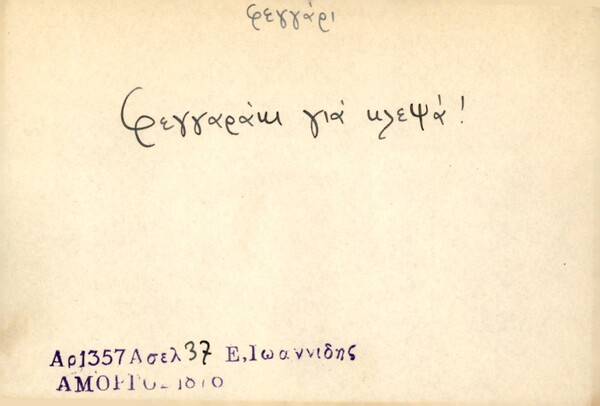 φεγγάρι
Φεγγαράκι γιά κλεψά!
Αρ1357Ασελ37 Ε,Ιωαννιδης
ΑΜΟΡΓΟΣ 1870